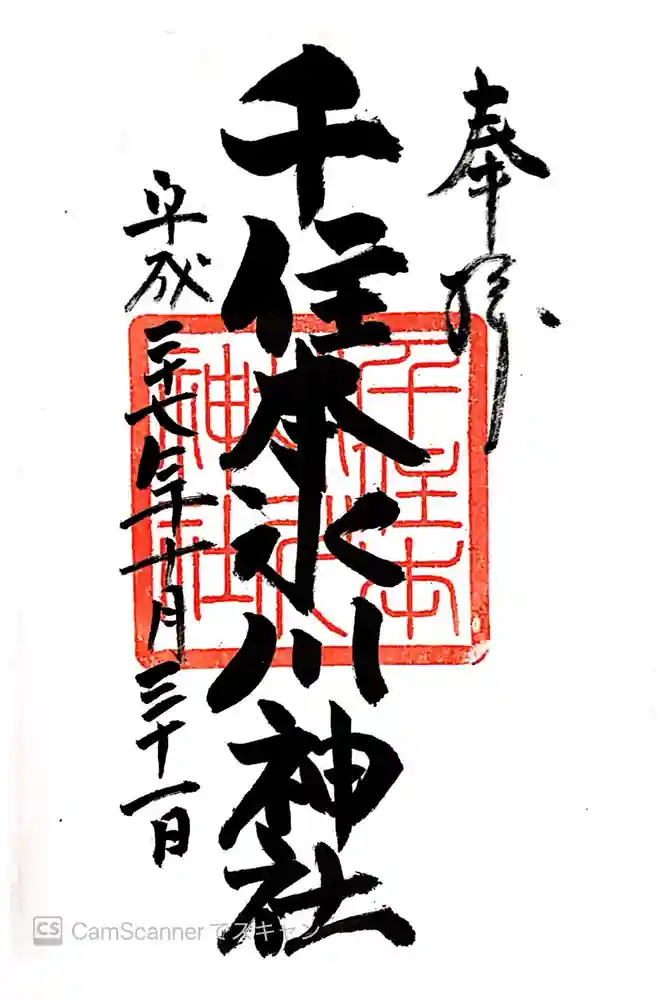 奉拝
千住本氷川神社
平成二十七年十月三十一日
千住本
氷川
神社
CS CamScanner でスキャン